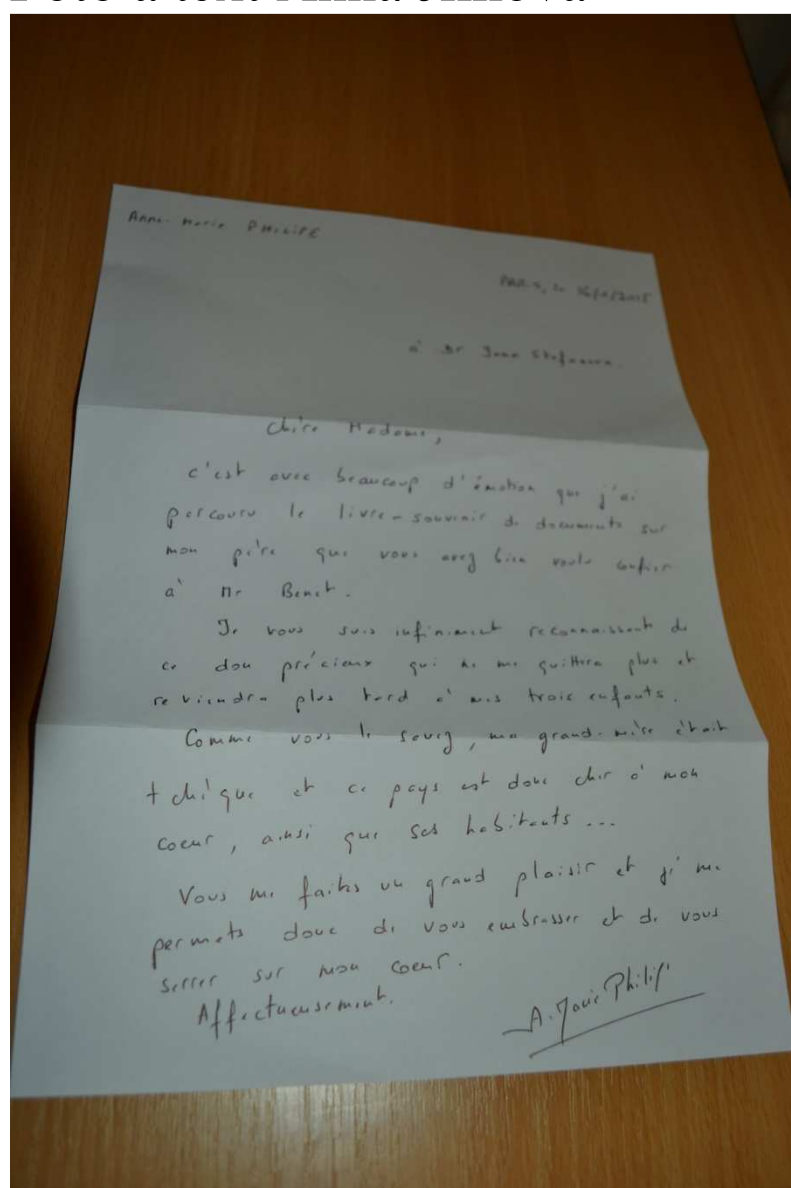 Anne-Marie PHILIPE
PARIS, le /2015
à Dr Jana
Chère Madame,
c'est avec beaucoup d'émotion que j'ai
parcouru le livre-souvenir de documents sur
mon père que vous avez bien voulu confier
à Mr Benet.
Je vous suis infiniment reconnaissante de
ce don précieux qui ne me quittera plus et
reviendra plus tard à mes trois enfants.
Comme vous le savez, ma grand-mère était
tchèque et ce pays est donc cher à mon
coeur, ainsi que ses habitants ...
Vous me faites un grand plaisir et je me
permets donc de vous embrasser et de vous
serrer sur mon coeur.
Affectueusement.
A. Marie Philipe